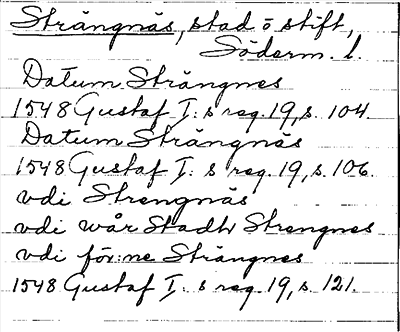 Strängnäs, stad o stift,
Söderm. l.
Datum Strängnes
1548 Gustaf I:s reg. 19, s. 104.
Datum Strängnäs
1548 Gustaf I:s reg. 19, s. 106.
vdi Strengnäs
vdi wår Stadh Strengnes
vdi för:ne Strängnes
1548 Gustaf I:s reg. 19, s. 121.